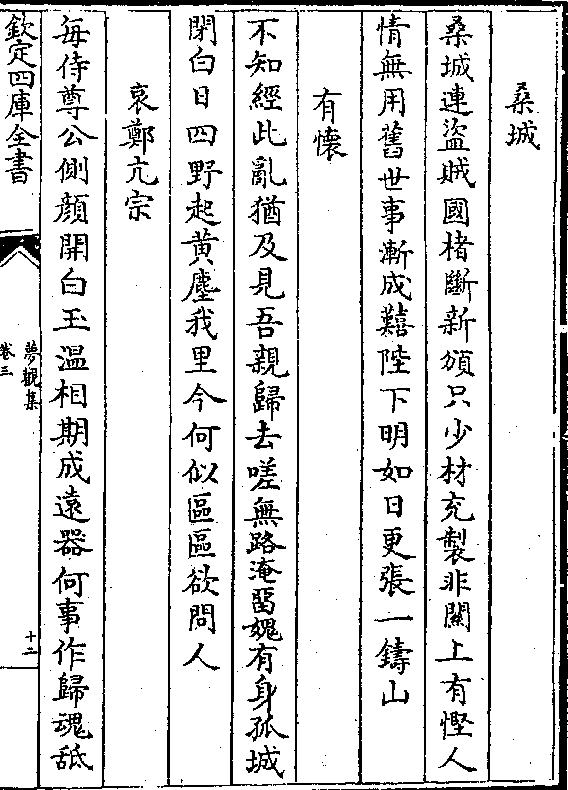 桑城
桑城連盜賊國楮斷新頒只少材充製非關上有慳人
情無用舊世事漸成囏陛下明如日更張一鑄山
有懷
不知經此亂猶及見吾親歸去嗟無路淹留媿有身孤城
閉白日四野起黄塵我里今何似區區欲問人
哀鄭亢宗
每侍尊公側顔開白玉温相期成逺器何事作歸魂舐
欽定四庫全書
夢觀集
卷三
十二